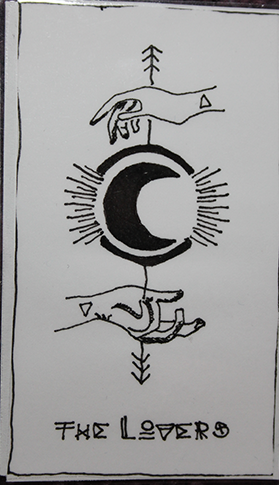 THE LOVERS